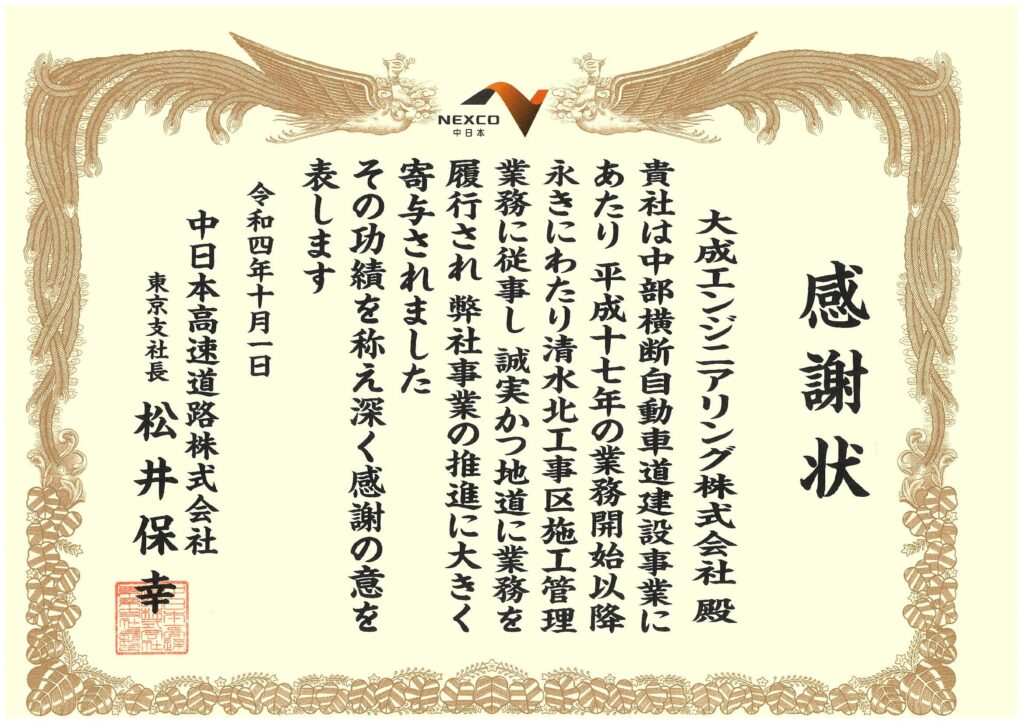 NEXCO
中日本
感謝状
大成エンジニアリング株式会社 殿
貴社は中部横断自動車道建設事業に
あたり 平成十七年の業務開始以降
永きにわたり清水北工事区施工管理
業務に従事し 誠実かつ地道に業務を
履行され 弊社事業の推進に大きく
寄与されました
その功績を称え深く感謝の意を
表します
令和四年十月一日
中日本高速道路株式会社
東京支社長 松井保幸